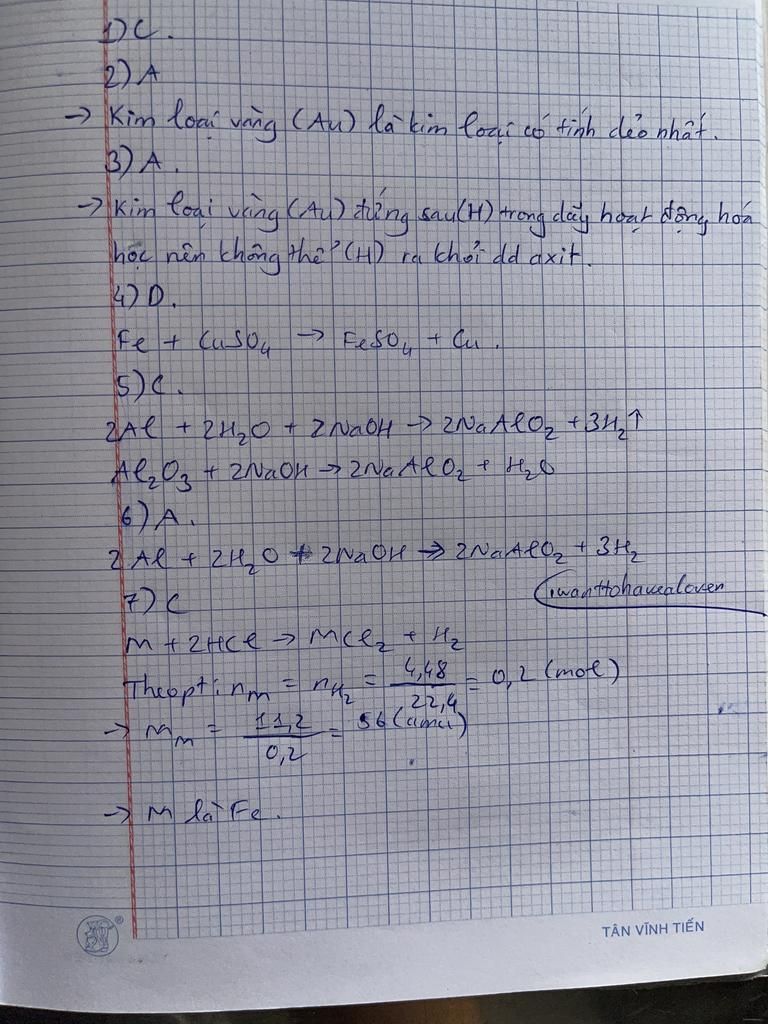 1) C.
2) A
→ Kim loại vàng (Au) là kim loại có tính dẻo nhất.
3) A.
→ Kim loại vàng (Au) đứng sau (H) trong dãy hoạt động hoá
học nên không thể (H) ra khỏi dd axit.
4) D.
Fe + CuSO₄ → FeSO₄ + Cu.
5) C.
2Al + 2H₂O + 2NaOH → 2NaAlO₂ + 3H₂↑
Al₂O₃ + 2NaOH → 2NaAlO₂ + H₂O
6) A.
2Al + 2H₂O + 2NaOH → 2NaAlO₂ + 3H₂
iwanttohavealover
7) C
M + 2HCl → MCl₂ + H₂
Theo pt: nM = nH₂ = 4,48/22,4 = 0,2 (mol)
→ MM = 11,2/0,2 = 56 (amu)
→ M là Fe.
TÂN VĨNH TIẾN